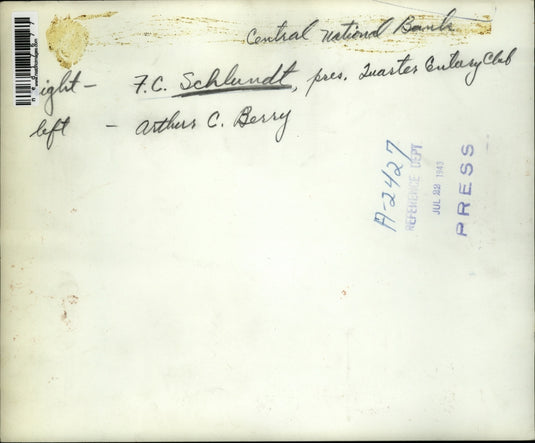 Central National Bank
ight - F.C. Schlundt, pres. Quarter Century Club
left - Arthur C. Berry
A-2427
REFERENCE DEPT.
JUL 22 1943
PRESS